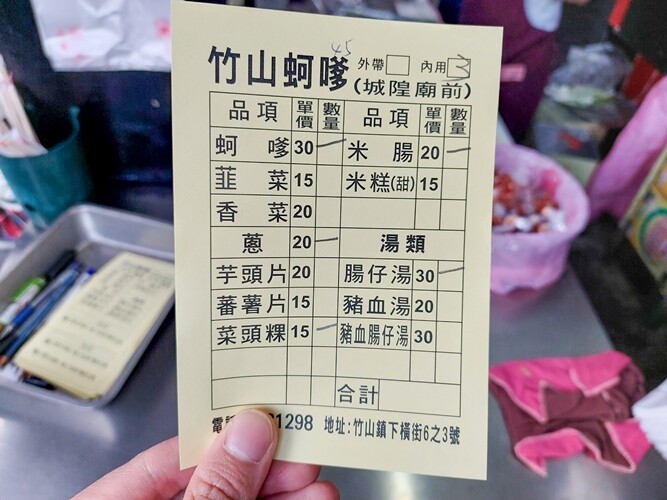 45
竹山蚵嗲 外帶 內用
(城隍廟前)
品項 單價 數量 品項 單價 數量
蚵嗲 30 一 米腸 20 一
韮菜 15 米糕(甜) 15
香菜 20
蔥 20 一 湯類
芋頭片 20 腸仔湯 30 一
蕃薯片 15 豬血湯 20
菜頭粿 15 一 豬血腸仔湯 30
合計
電 1298 地址:竹山鎮下橫街6之3號